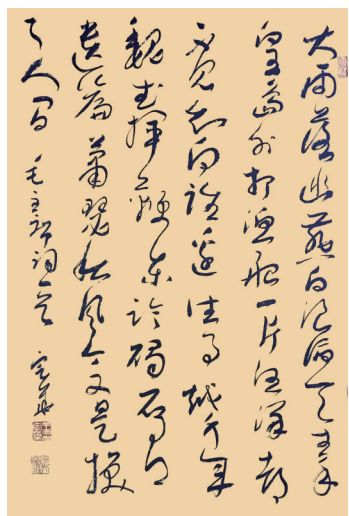 大雨落幽燕白浪滔天秦
皇岛外打渔船一片汪洋都
不见知向谁边往事越千年
魏武挥鞭东临碣石有
遗篇萧瑟秋风今又是换
了人间 毛主席词一首